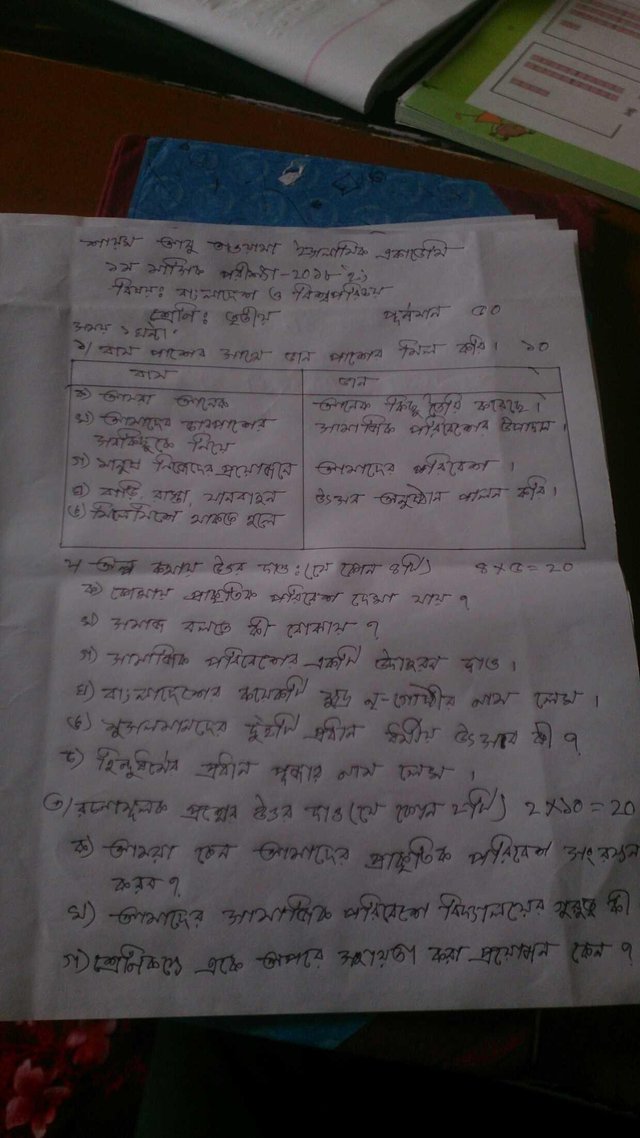 শায়খ আবু তাওয়ামা ইসলামিক একাডেমি
১ম মাসিক পরীক্ষা-2018 ইং
বিষয়: বাংলাদেশ ও বিশ্বপরিচয়
শ্রেণি: তৃতীয় পূর্ণমান ৫০
সময় ১ ঘন্টা
১/ বাম পাশের সাথে ডান পাশের মিল কর। ১০
বাম ডান
ক) আমরা অনেক অনেক কিছু তৈরি করেছে।
খ) আমাদের চারপাশের সামাজিক পরিবেশের উপাদান।
সবকিছুকে নিয়ে
গ) মানুষ নিজেদের প্রয়োজনে আমাদের পরিবেশ।
ঘ) বাড়ি, রাস্তা, যানবাহন উৎসব অনুষ্ঠান পালন করি।
ঙ) মিলেমিশে থাকতে হলে
২/ অল্প কথায় উত্তর দাও: (যে কোন ৪টি) ৪×৫=20
ক) কোথায় প্রাকৃতিক পরিবেশ দেখা যায়?
খ) সমাজ বলতে কী বোঝায়?
গ) সামাজিক পরিবেশের একটি উদাহরন দাও।
ঘ) বাংলাদেশের কয়েকটি ক্ষুদ্র নৃ-গোষ্ঠীর নাম লেখ।
ঙ) মুসলমানদের দুইটি প্রধান ধর্মীয় উৎসব কী?
চ) হিন্দুধর্মের প্রধান পূজার নাম লেখ।
৩/ রচনামূলক প্রশ্নের উত্তর দাও (যে কোন ২টি) 2×১০=20
ক) আমরা কেন আমাদের প্রাকৃতিক পরিবেশ সংরক্ষন
করব?
খ) আমাদের সামাজিক পরিবেশে বিদ্যালয়ের গুরুত্ব কী
গ) শ্রেণিকক্ষে একে অপরে সহায়তা করা প্রয়োজন কেন?